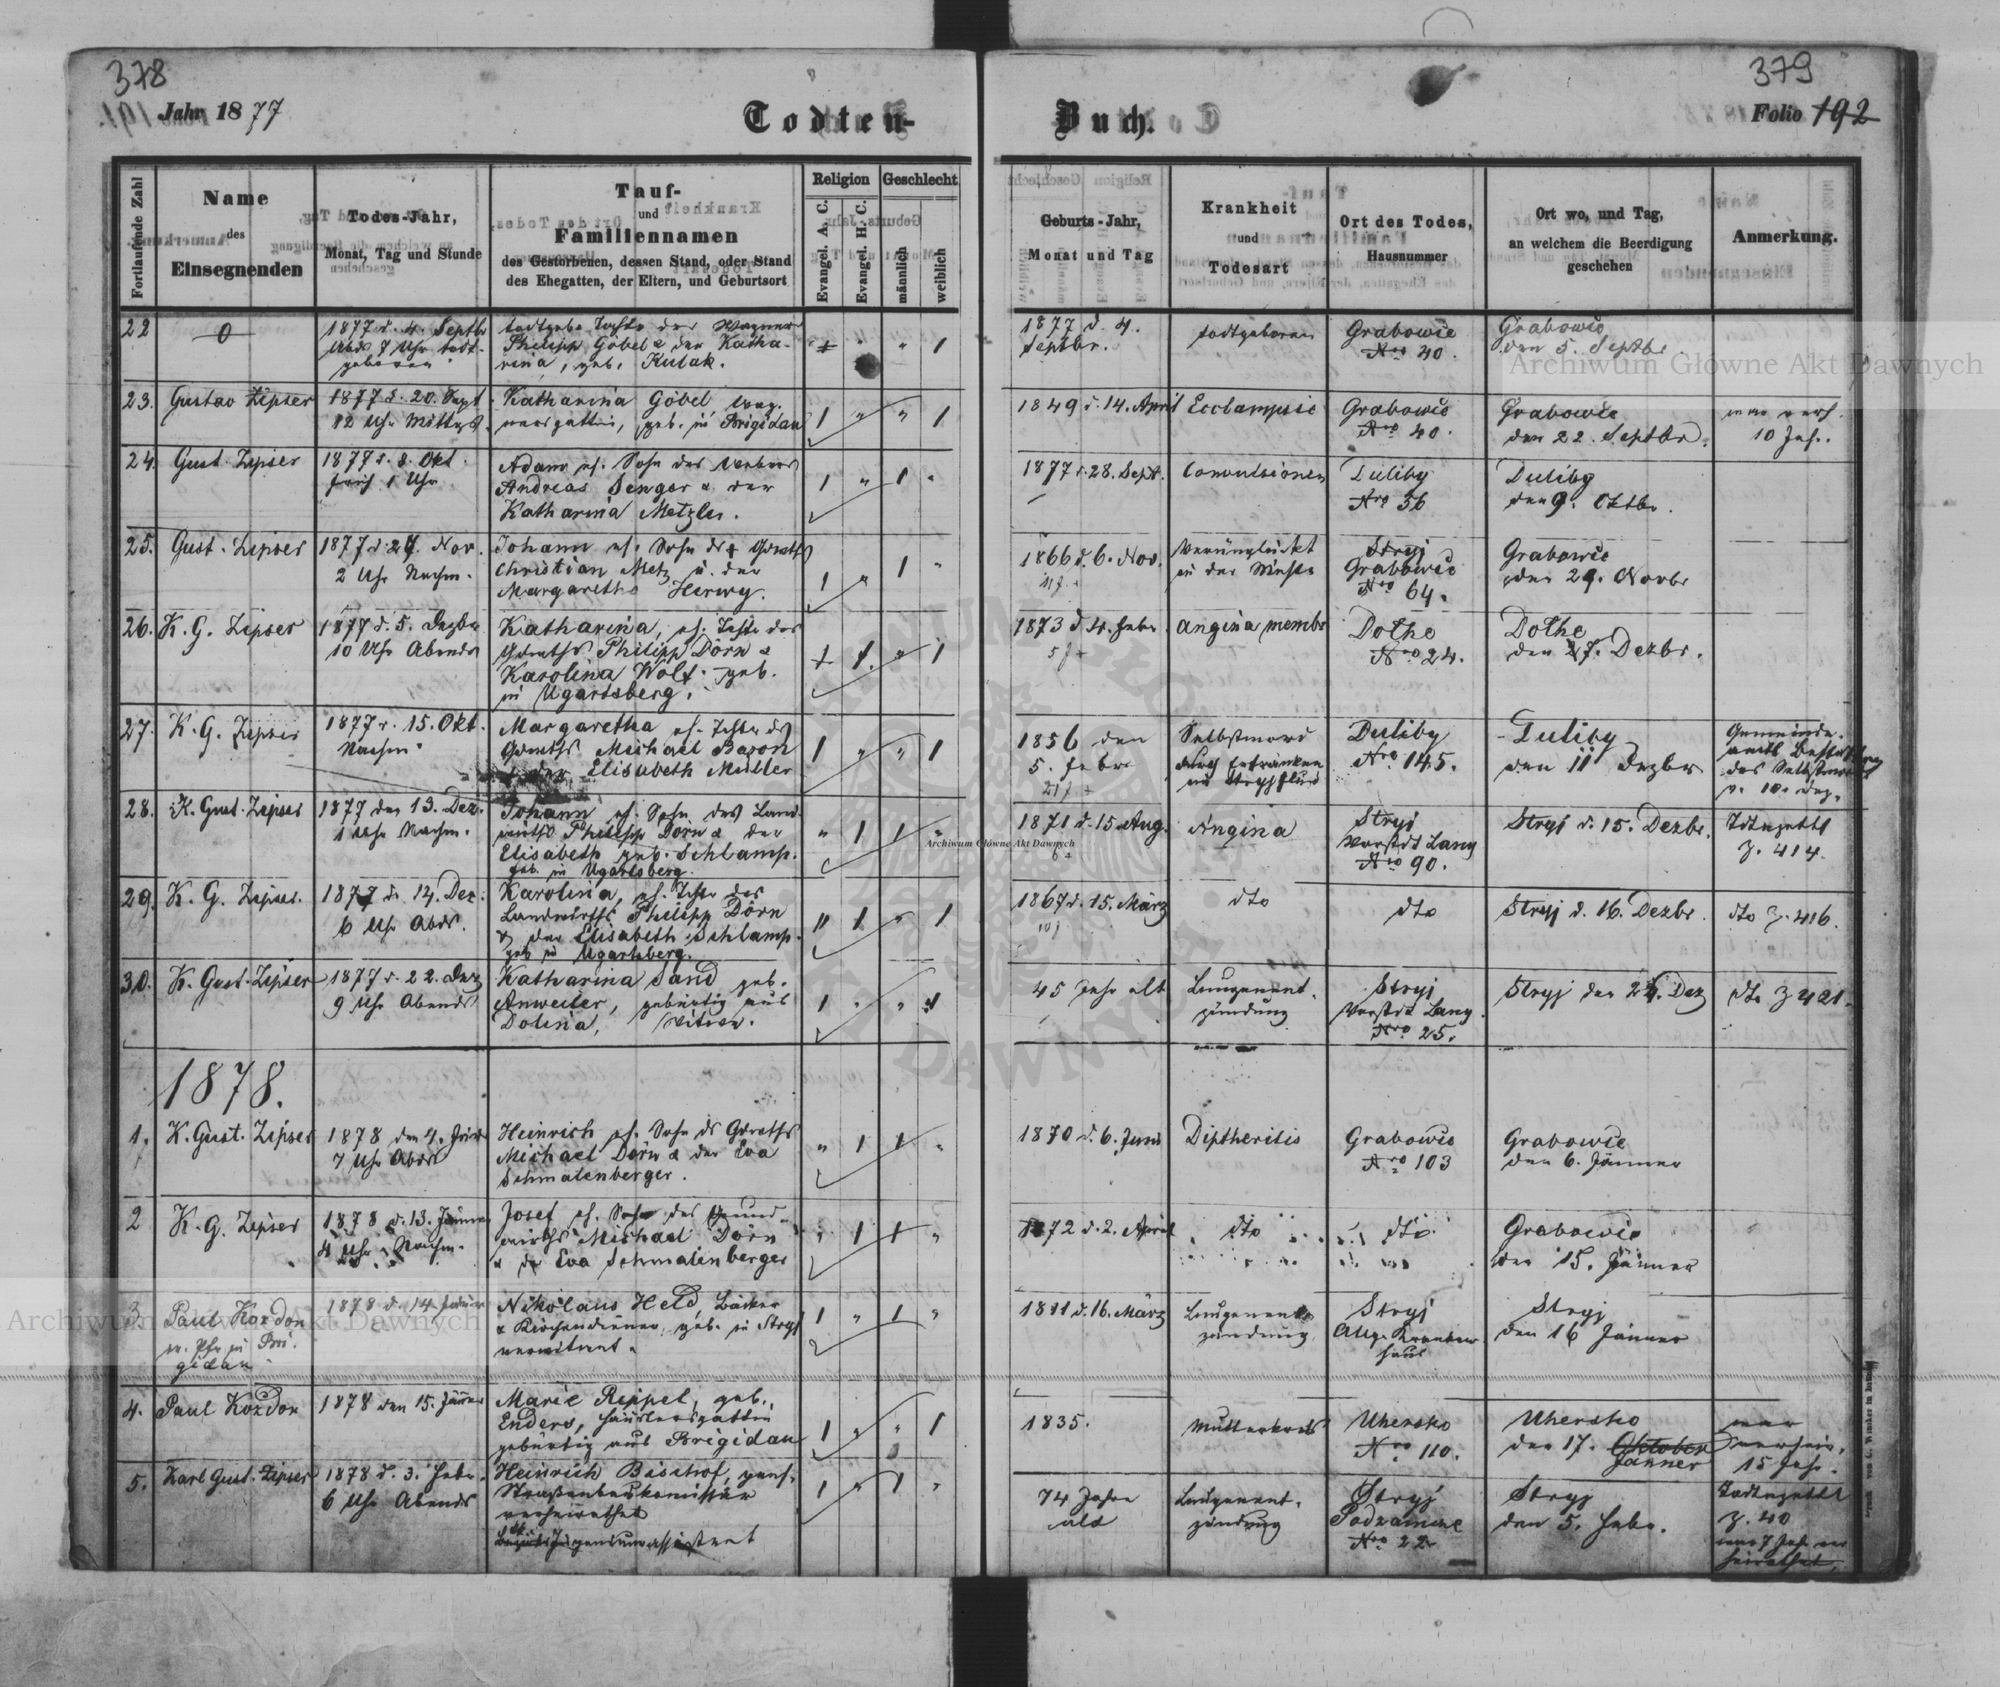 378
379
Jahr 1877
Todten-
Buch.
Folio 192
Fortlaufende Zahl
Name
des
Einsegnenden
Todes-Jahr,
Monat, Tag und Stunde
Tauf-
und
Familiennamen
des Gestorbenen, dessen Stand, oder Stand
des Ehegatten, der Eltern, und Geburtsort
Religion
Evangel. A. C.
Evangel. H. C.
Geschlecht
männlich
weiblich
Geburts-Jahr,
Monat und Tag
Krankheit
und
Todesart
Ort des Todes,
Hausnummer
Ort wo, und Tag,
an welchem die Beerdigung
geschehen
Anmerkung.
22
0
1877 d. 4. Septbr
Abds 7 Uhr todt-
geboren
todtgeb. Tochter des Wagner
Philipp Göbel & der Katha-
rina, geb. Kulak.
1
1877 d. 4.
Septbr.
todtgeboren
Grabowce
Nro 40.
Grabowce
den 5. Septbr
23.
Gustav Zipser
1877 d. 20. Sept
12 Uhr Mittgs.
Katharina Göbel, Wag-
nersgattin, geb. in Brigidau
1 " " 1
1849 d. 14. April
Ecclampsie
Grabowce
Nro 40.
Grabowce
den 22. Septbr.
war verh.
10 Jah.
24.
Gust. Zipser
1877 d. 8. Okt.
früh 1 Uhr
Adam eh. Sohn des Webers
Andreas Senger & der
Katharina Metzler.
1 " 1 "
1877 d. 28. Sept.
Convulsionen
Duliby
Nro 36
Duliby
den 9. Oktbr.
25.
Gust. Zipser
1877 d. 27. Nov.
2 Uhr Nachm.
Johann eh. Sohn des Grwths
Christian Metz u. der
Margaretha Herwy.
1 " 1 "
1866 d. 6. Nov.
11 J.
Verunglückt
in der Mühle
Stryj
Grabowce
Nro 64.
Grabowce
den 29. Novbr
26.
K. G. Zipser
1877 d. 5. Dezbr
10 Uhr Abends
Katharina, eh. Tchtr des
Grwths Philipp Dörn &
Karolina Wolf. geb.
in Ugartsberg.
1 " 1
1873 d. 4. Febr.
5 J.
Angina membr
Dolhe
Nro 24.
Dolhe
den 7. Dezbr.
27.
K. G. Zipser
1877 d. 15. Okt.
Nachm.
Margaretha eh. Tchtr ds
Grwths Michael Baron
& der Elisabeth Müller
1 " " 1
1856 den
5. Febr
21 J.
Selbstmord
durch Ertränken
im Stryjfluss
Duliby
Nro 145.
Duliby
den 11 Dezbr.
Gemeinde-
28.
K. Gust. Zipser
1877 den 13. Dez.
1 Uhr Nachm.
Johann eh. Sohn des Land-
wirths Philipp Dörn & der
Elisabeth geb. Schlamp.
geb. in Ugartsberg.
" 1 1 "
1871 d. 15 Aug.
6
Angina
Stryj
Vorstdt Lany
Nro 90.
Stryj d. 15. Dezbr.
Tdtnzettl
Z. 414.
29.
K. G. Zipser.
1877 d. 14. Dez.
6 Uhr Abds.
Karolina, eh. Tchtr des
Landwirths Philipp Dörn
& der Elisabeth Schlamp.
geb in Ugartsberg.
" 1 " 1
1867 d. 15. März
10 J
dto
dto
Stryj d. 16. Dezbr.
dto Z. 416.
30.
K. Gust. Zipser
1877 d. 22. Dez
9 Uhr Abends
Katharina Sand geb.
Anweiler, gebürtig aus
Dolina, Witwe.
1 " " 1
45 Jahr alt
Lungenent-
zündung
Stryj
Vorstdt Lany
Nro 25.
Stryj den 24. Dez
dto Z 421.
1878.
1.
K. Gust. Zipser
1878 den 4. Jän
7 Uhr Abds
Heinrich eh. Sohn ds Grwths
Michael Dörn & der Eva
Schmalenberger.
" 1 1 "
1870 d. 6. Juni
Diptheritis
Grabowce
Nro 103
Grabowce
den 6. Jänner
2
K. G. Zipser
1878 d. 13. Jänner
4 Uhr Nachm.
Josef eh. Sohn des Grund-
wirths Michael Dörn
& der Eva Schmalenberger
" 1 1 "
1872 d. 2. April
dto
dto
Grabowce
den 15. Jänner
3.
Paul Kozdon
ev. Pfr in Bri-
gidau
1878 d. 14 Jänner
Nikolaus Held, Bäcker
& Kirchendiener, geb. in Stryj
verwitwet.
1 " 1 "
1811 d. 16. März
Lungenent-
zündung
Stryj
Allg. Kranken
haus
Stryj
den 16 Jänner
4.
Paul Kozdon
1878 den 15. Jänner
Marie Reppel, geb.
Enders, Häuslersgattin
gebürtig aus Brigidau
1 " " 1
1835.
Mutterkrebs
Uhersko
Nro 110.
Uhersko
den 17. Oktober
Jänner
war
verheir.
15 Jahr.
5.
Karl Gust. Zipser
1878 d. 3. Febr.
6 Uhr Abends
Heinrich Bischof, pens.
Straßenbaukomissär
verheirathet
1 " 1 "
74 Jahre
alt
Lungenent-
zündung
Stryj
Podzamcze
Nro 22
Stryj
den 5. Febr.
Todtnzettl
Z. 40
war 7 Jahr ver
heirathet.
Archiwum Główne Akt Dawnych
Archiwum Główne Akt Dawnych
Archiwum Główne Akt Dawnych